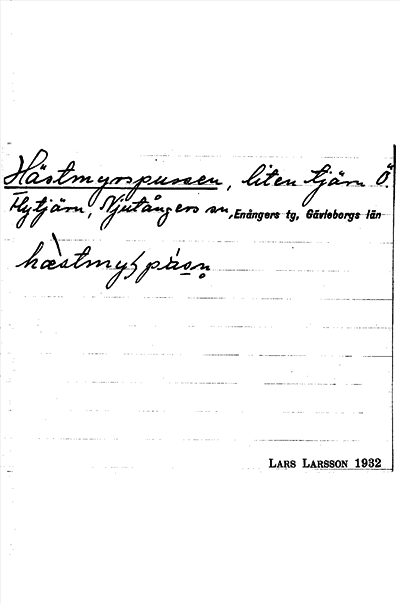 Hästmyrspussen, liten tjärn Ö.
Flytjärn, Njutångers sn, Enångers tg, Gävleborgs län
hæstmyṣpásn̥
LARS LARSSON 1932